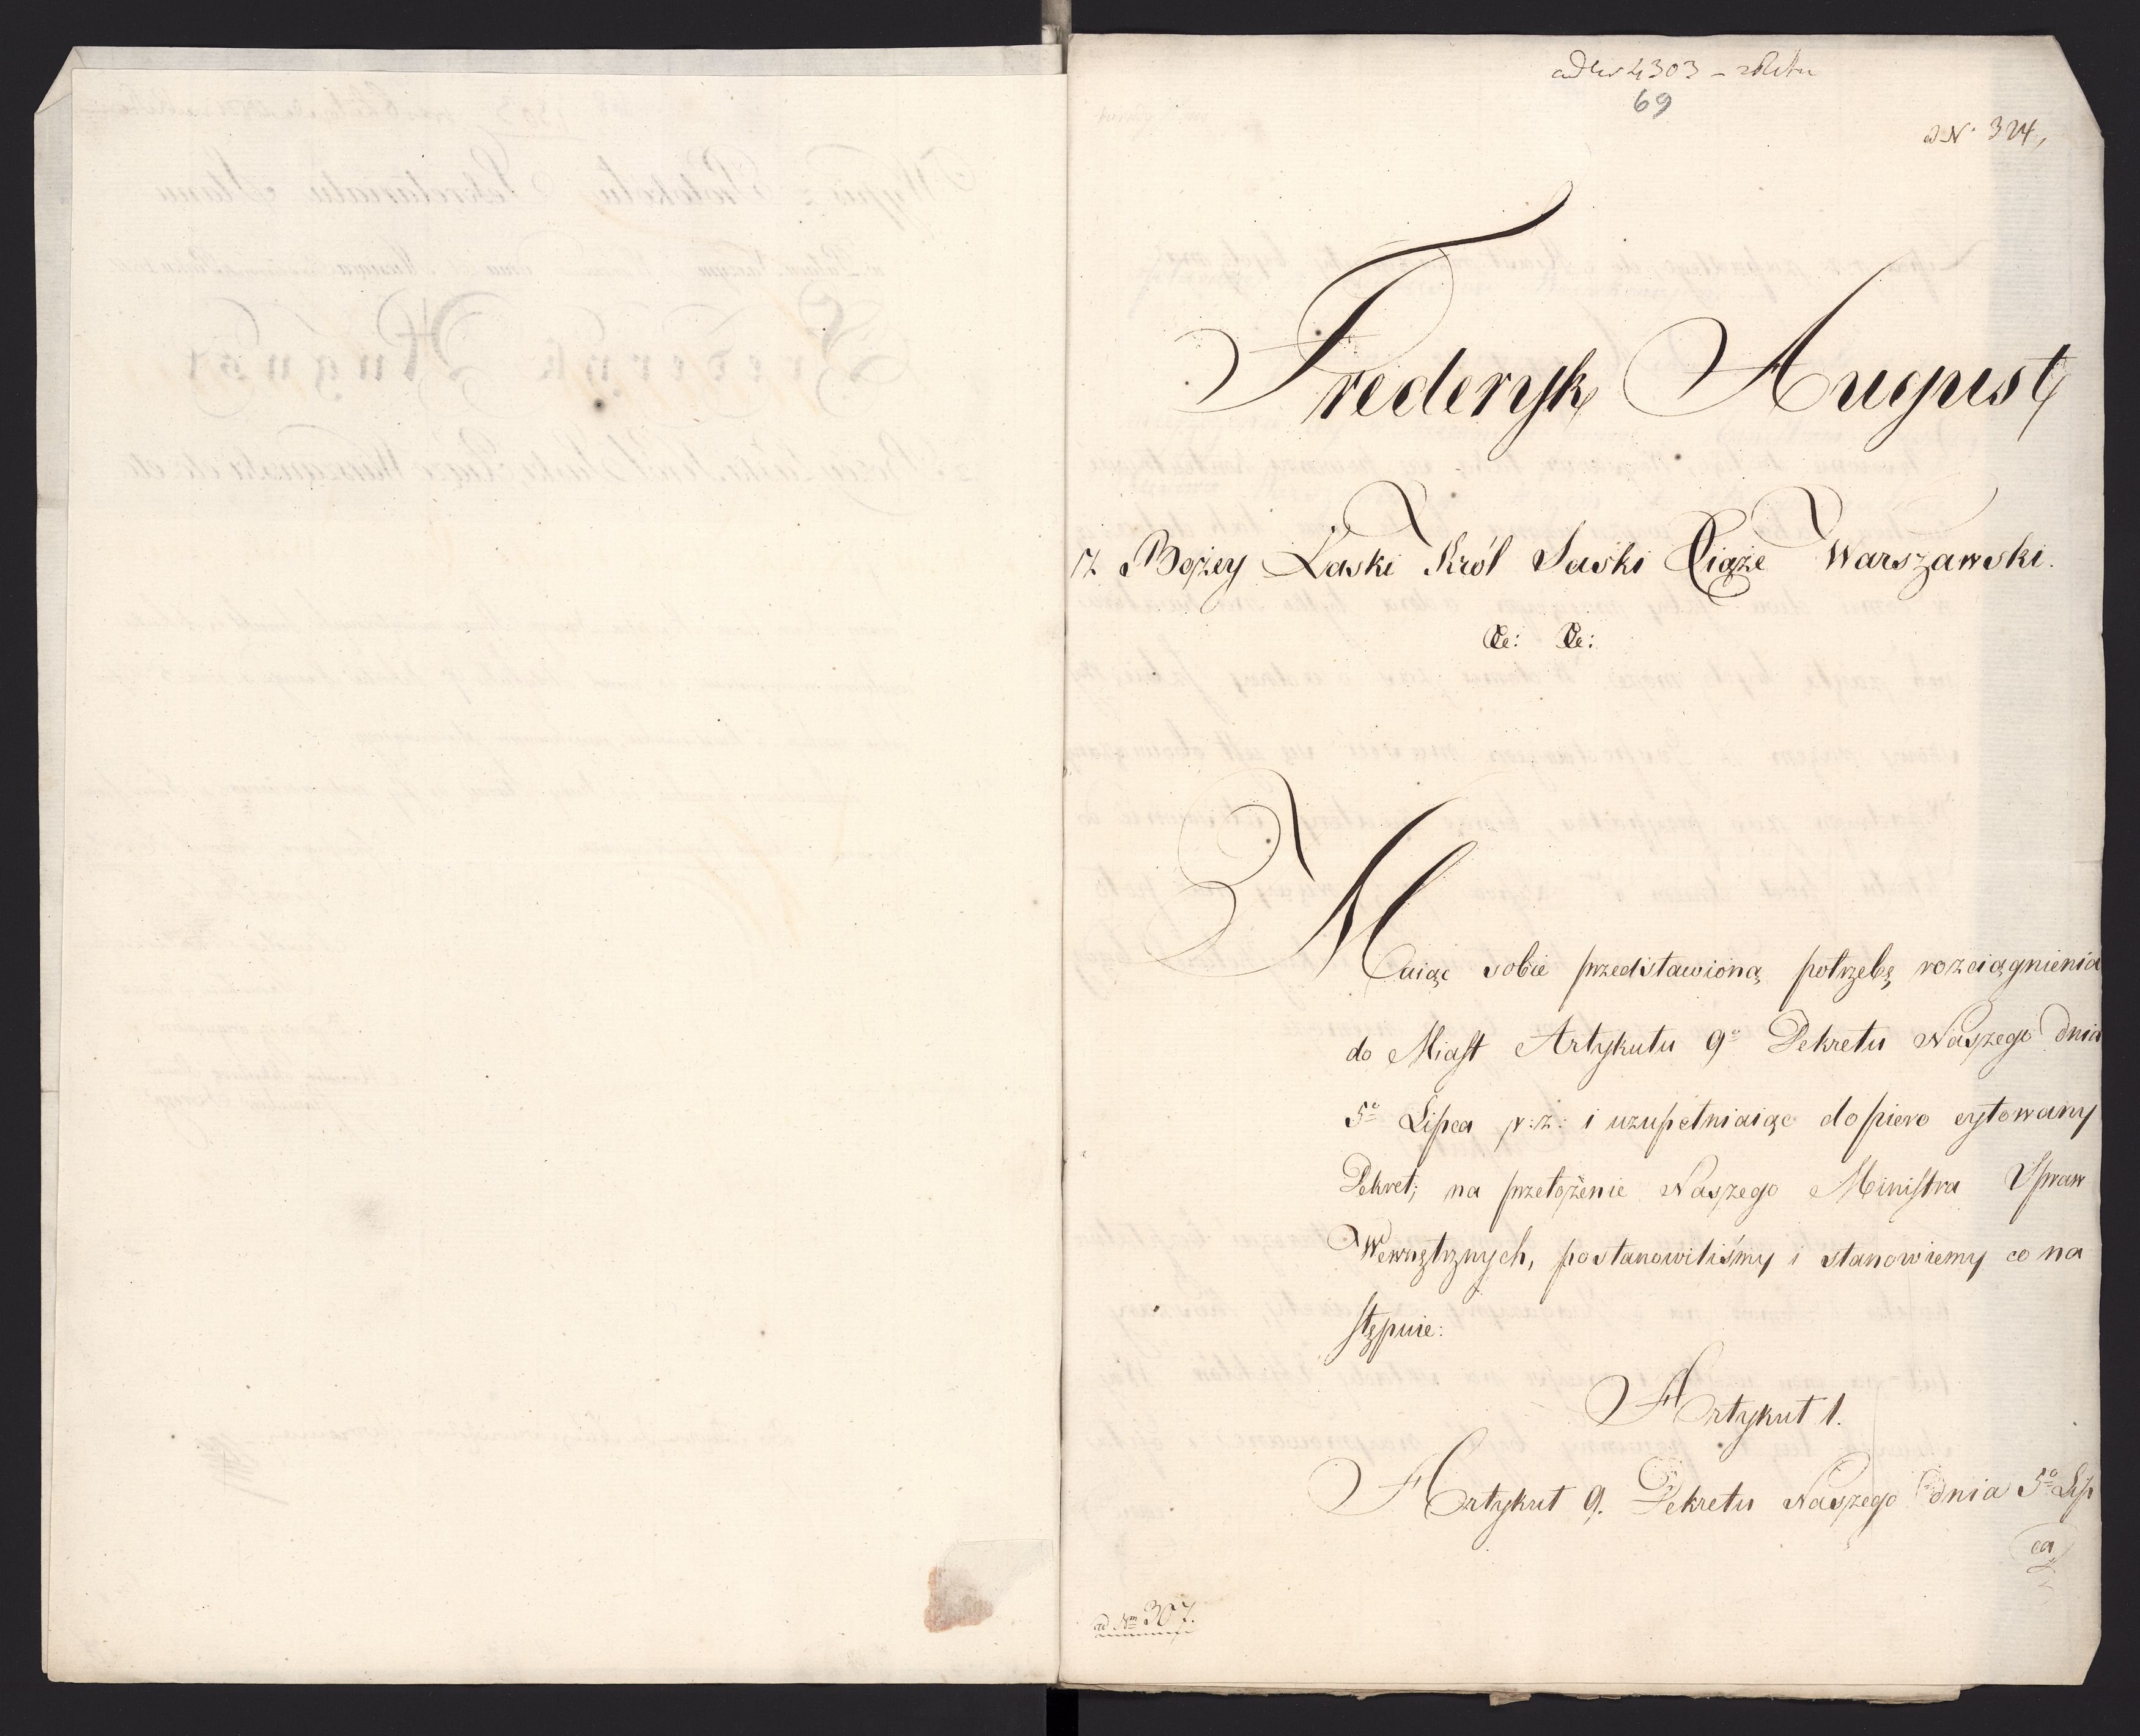 4303
69
ad N. 324,
Frederyk August
Z Bożey Łaski Król Saski Xiąże Warszawski.
&c: &c:
Maiąc sobie przedstawioną potrzebę rozciągnienia
do Miast Artykułu 9º Dekretu Naszego dnia
5º Lipca r: z: i uzupełniaiąc dopiero cytowany
Dekret; na przełożenie Naszego Ministra Spraw
Wewnętrznych, postanowiliśmy i stanowiemy co na
stępuie:
Artykuł 1.
Artykuł 9. Dekretu Naszego dnia 5º Lip
ca
ad Nm 307.